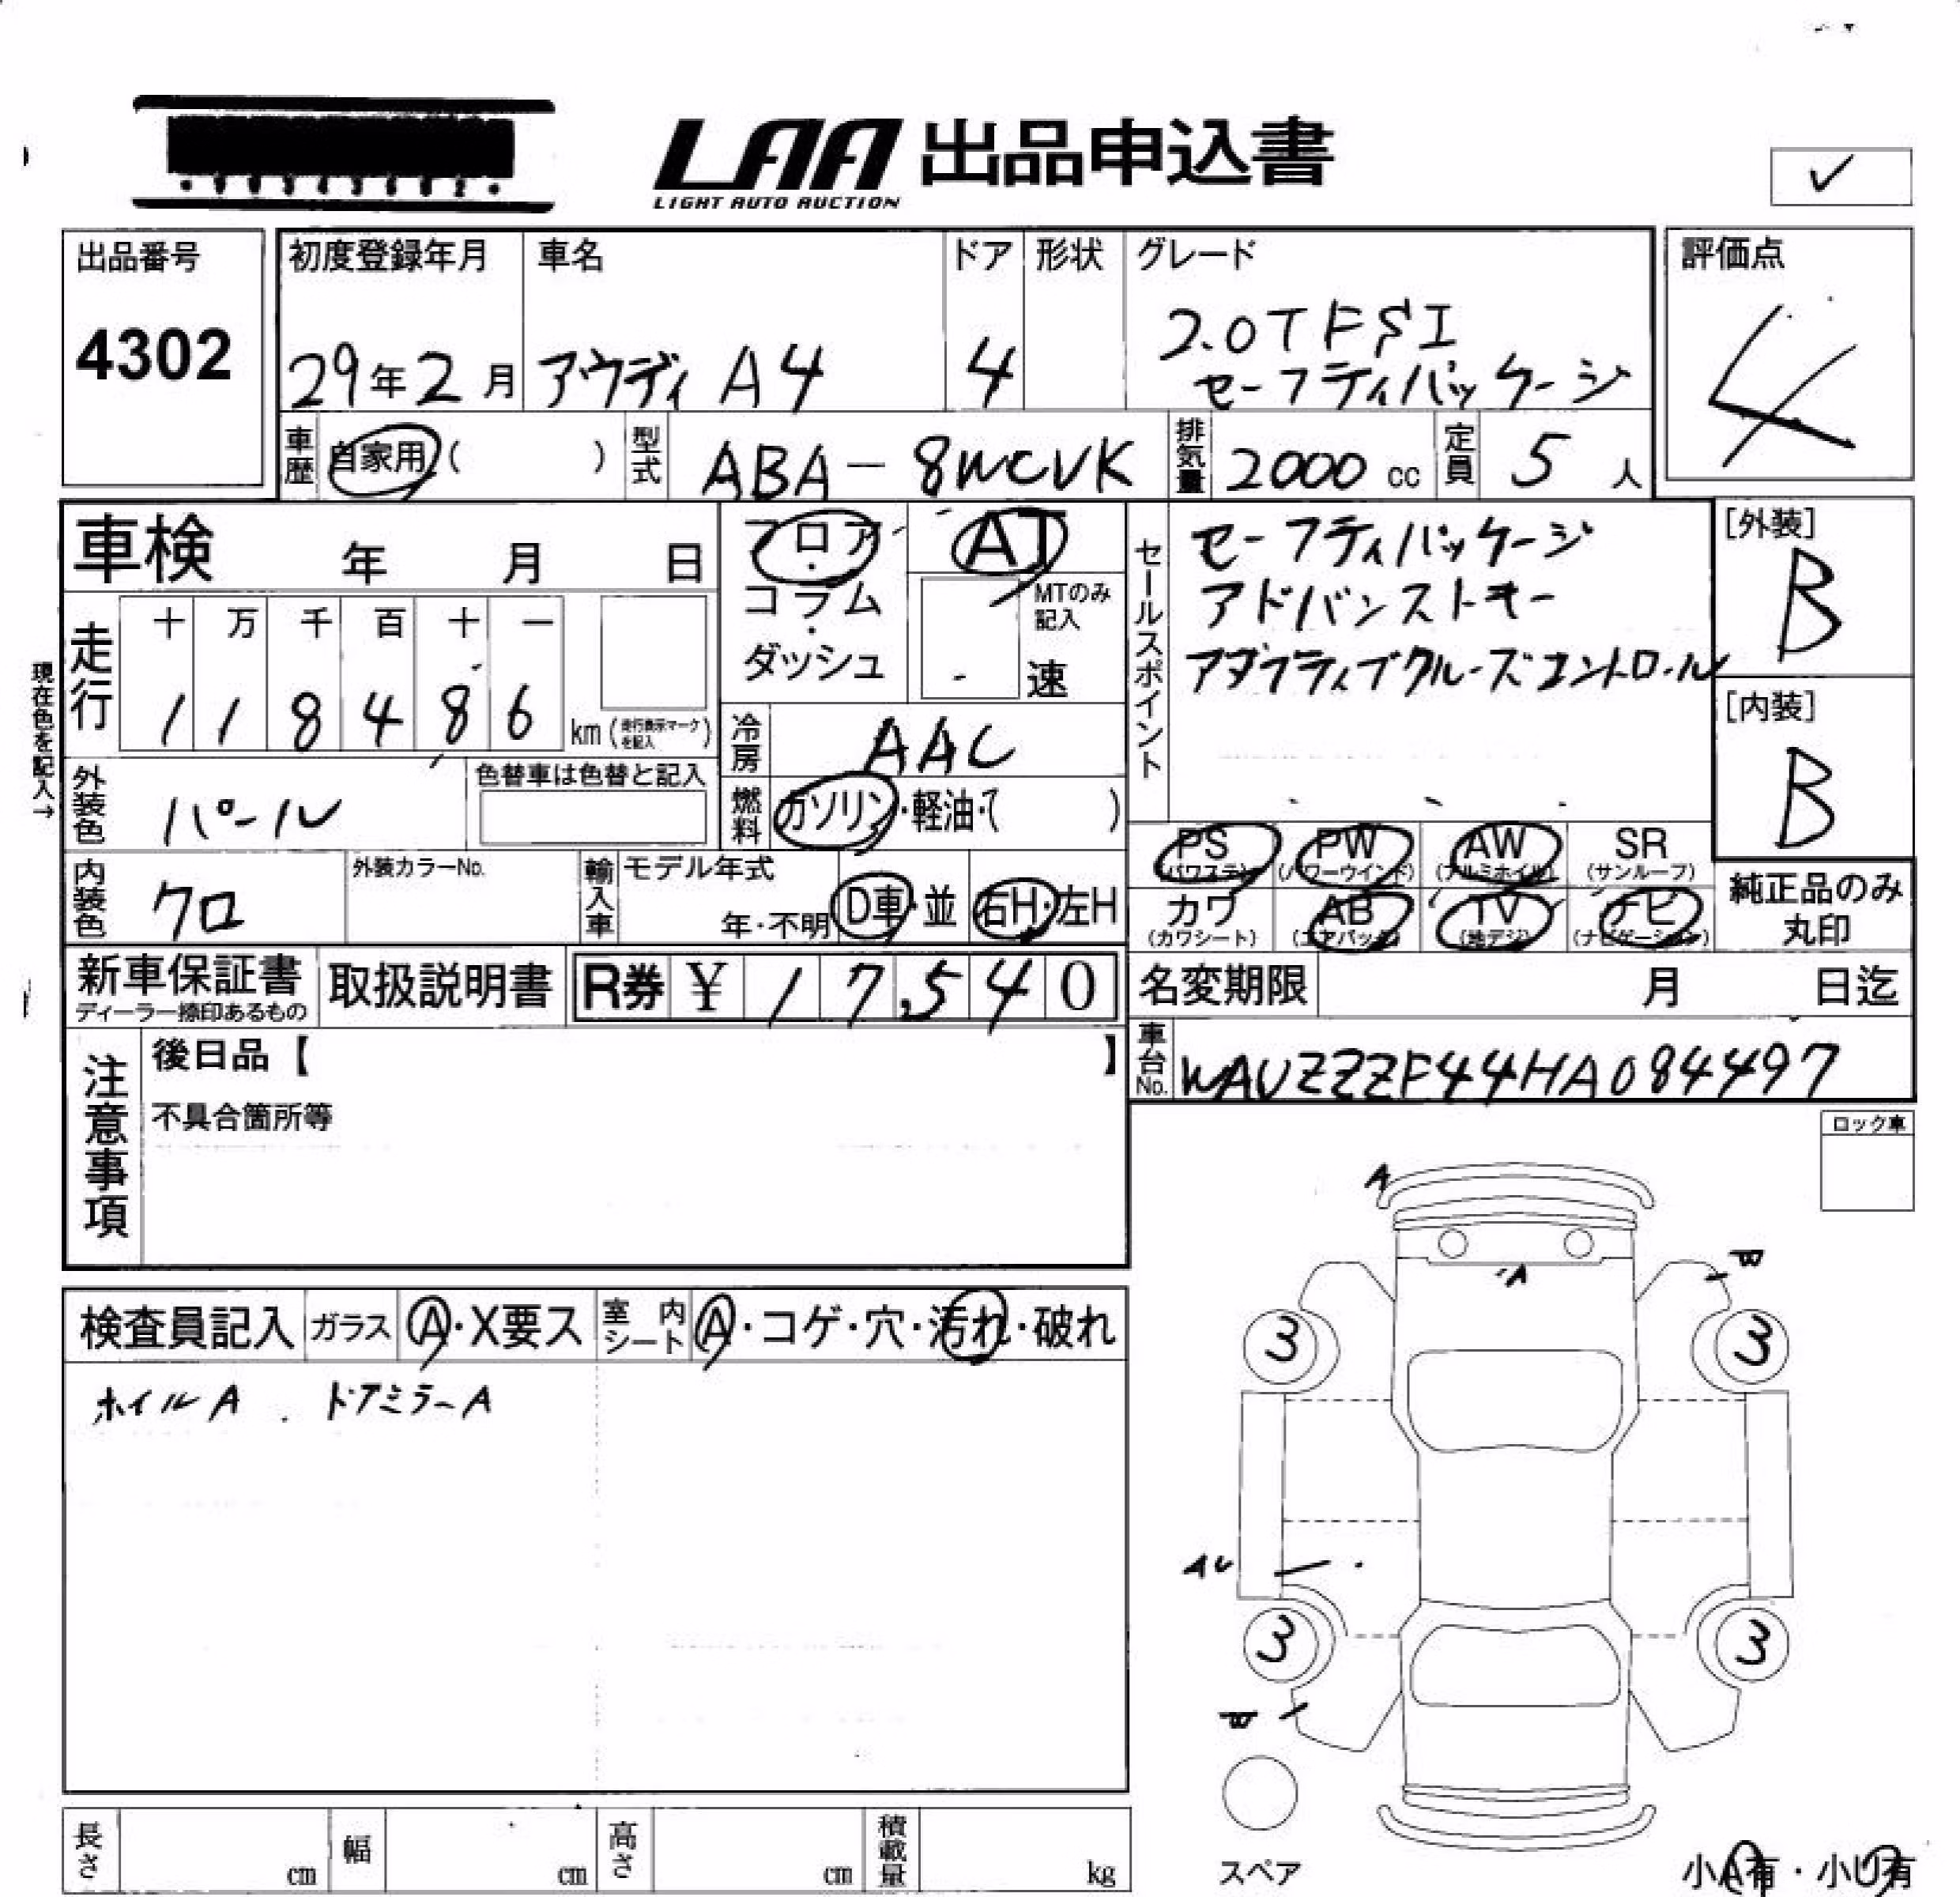 LAA 出品申込書
LIGHT AUTO AUCTION
✓
出品番号
4302
初度登録年月
29年2月
車名
アウディ A4
ドア
4
形状
グレード
2.0TFSI
セーフティパッケージ
評価点
4
車歴
自家用( )
型式
ABA-8WCVK
排気量
2000 cc
定員
5 人
車検 年 月 日
フロア・
コラム・
ダッシュ
AT
MTのみ
記入
速
セールスポイント
セーフティパッケージ
アドバンストキー
アダプティブクルーズコントロール
[外装]
B
[内装]
B
現在色を記入→
走行
十 万 千 百 十 一
1 1 8 4 8 6 km(走行表示マークを記入)
冷房
AAC
外装色
パール
色替車は色替と記入
燃料
ガソリン・軽油・( )
PS
(パワステ)
PW
(パワーウインド)
AW
(アルミホイル)
SR
(サンルーフ)
内装色
クロ
外装カラーNo.
輸入車
モデル年式
年・不明
D車・並
右H・左H
カワ
(カワシート)
AB
(エアバック)
TV
(地デジ)
ナビ
(ナビゲーション)
純正品のみ
丸印
新車保証書
ディーラー捺印あるもの
取扱説明書
R券 ¥ 17,540
名変期限 月 日迄
車台No.
WAUZZZF44HA084497
注意事項
後日品【 】
不具合箇所等
ロック車
A
A
W
検査員記入
ガラス
A・X要ス
室内シート
A・コゲ・穴・汚れ・破れ
ホイルA . ドアミラーA
3
3
AU
3
3
W
スペア
長さ cm
幅 cm
高さ cm
積載量 kg
小A有・小U有